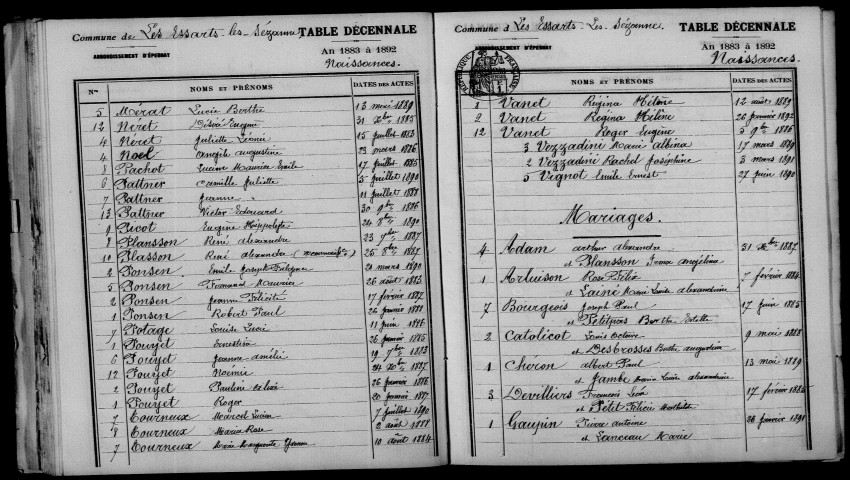 Commune de Les Essarts-les-Sézanne,
ARRONDISSEMENT D'ÉPERNAY
TABLE DÉCENNALE
An 1883 à 1892
Naissances.
Nos NOMS ET PRÉNOMS DATES DES ACTES
5 Mérat Lucie Berthe 13 mai 1889
12 Néret Désiré Eugène 31 Xbre 1885
4 Néret Juliette Léonie 15 juillet 1883
4 Noël Angèle augustine 23 mars 1886
8 Pachot Lucien Maurice Emile 17 juillet 1885
6 Pattner Camille Juliette 5 juillet 1890
7 Pattner Jeanne 11 juillet 1888
13 Pattner Victor Edouard 30 9bre 1886
9 Picot Eugène Hippolyte 24 8bre 1890
8 Plansson René alexandre 23 7bre 1887
10 Plasson René alexandre 25 8bre 1887
2 Ponsen Emile Joseph 21 mars 1890
5 Ponsen Fernand Maurice 26 août 1883
2 Ponsen Jeanne Félicité 17 février 1887
1 Ponsen Robert Paul 26 janvier 1888
7 Potage Louise Lucie 11 juin 1886
1 Pouyet Ernestine 26 janvier 1885
6 Pouyet Jeanne amélie 19 7bre 1883
12 Pouyet Noémie 24 Xbre 1887
2 Pouyet Pauline 26 janvier 1886
1 Pouyet Roger 20 janvier 1887
7 Tourneux Marcel Lucien 7 juillet 1890
8 Tourneux Maria Rose 2 août 1888
7 Tourneux Marie Marguerite 10 août 1884
Commune d Les Essarts-Les-Sézanne.
ARRONDISSEMENT D'ÉPERNAY
TABLE DÉCENNALE
An 1883 à 1892
Naissances.
NOMS ET PRÉNOMS DATES DES ACTES
1 Vanet Régina Hélène 12 août 1889
2 Vanet Regina Hélène 26 janvier 1892
12 Vanet Roger Eugène 5 9bre 1886
3 Vezzadini Marie albina 17 mars 1889
2 Vezzadini Rachel Joséphine 3 mars 1891
5 Vignot Emile Ernest 27 juin 1890
Mariages.
4 Adam arthur alexandre 31 Xbre 1887
et Plansson angélina
1 Arluison Rose Félix 7 février 1884
et Lainé Marie Louise alexandrine
7 Bourgeois Joseph Paul 17 juin 1885
et Petitpas Berthe
2 Catolicot Louis Octave 9 mai 1888
et Desbrosses Berthe augustine
1 Chéron albert Paul 13 mai 1889
et Jambe Marie Louise alexandrine
3 Devilliers François Léon 17 février 1885
et Petit Félicie Mathilde
1 Gaupin Pierre antoine 26 janvier 1891
et Lanceau Marie